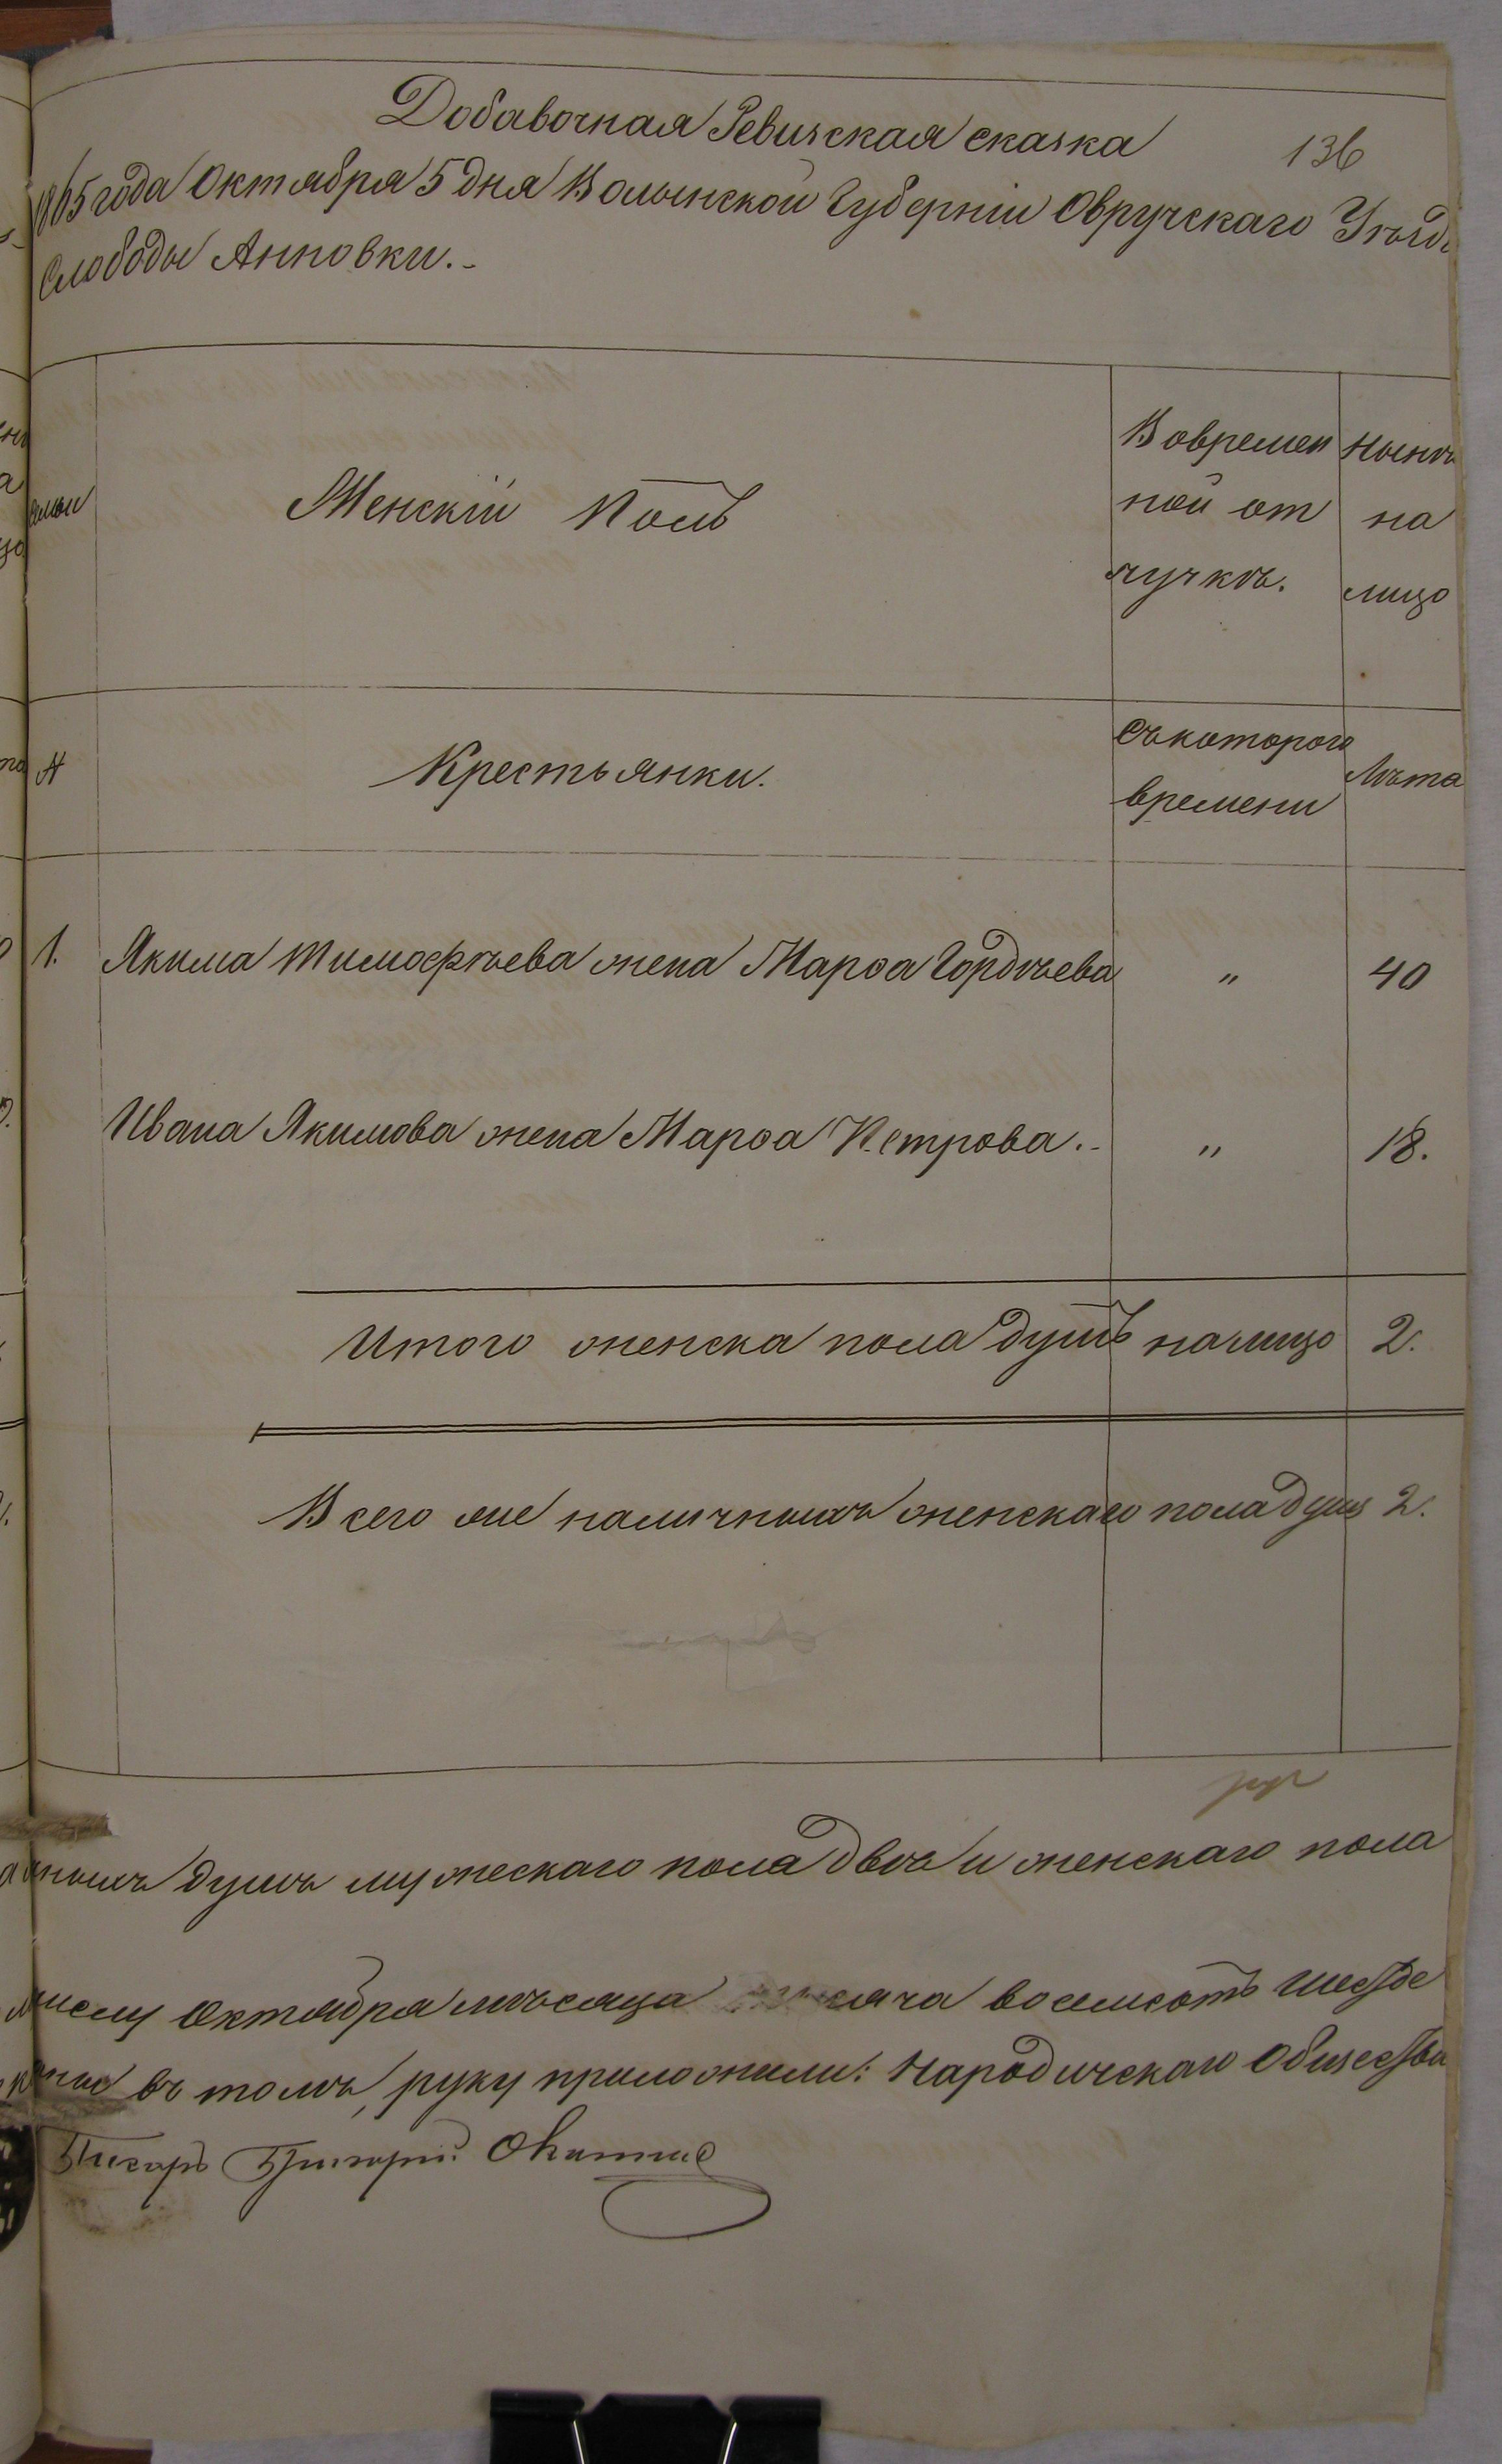 Добавочная Ревизская сказка
136
1865 года Октября 5 дня Волынской Губерніи Овручскаго Уѣзда
Слободы Анновки.
Женскій Полъ
Вовремен
ной от
лучкѣ.
Нынѣ
на
лицо
Крестьянки.
Съкоторого
времени
Лѣта
1. Якима Тимофѣева жена Марѳа Гордѣева " 40
Ивана Якимова жена Марѳа Петрова. " 18.
Итого женска пола душъ налицо 2.
Всего же наличныхъ женскаго пола душ 2.
душъ мужескаго пола двѣ и женскаго пола
числу Октября мѣсяца тысяча восемсотъ шестьде
въ томъ, руку приложили: Народическаго Общества
Писарь Григорій